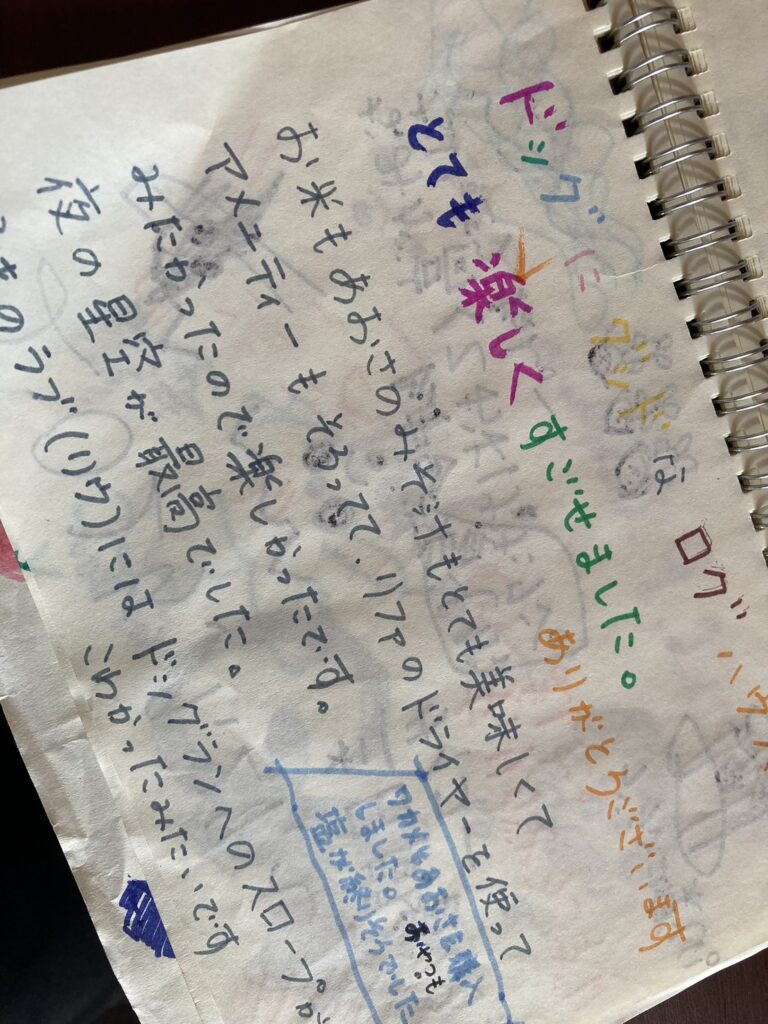 ドッグに グッドな ログハウス
とても楽しくすごせました。ありがとうございます
お米もあおさのみそ汁もとても美味しくて
アメニティーもそろってて、リファのドライヤーを使って
みたかったので楽しかったです。
夜の星空が最高でした。
ラブ(リウ)には ドッグランへのスロープが
こわかったみたいです
ワカメとあおさを購入
しました。 おやつも